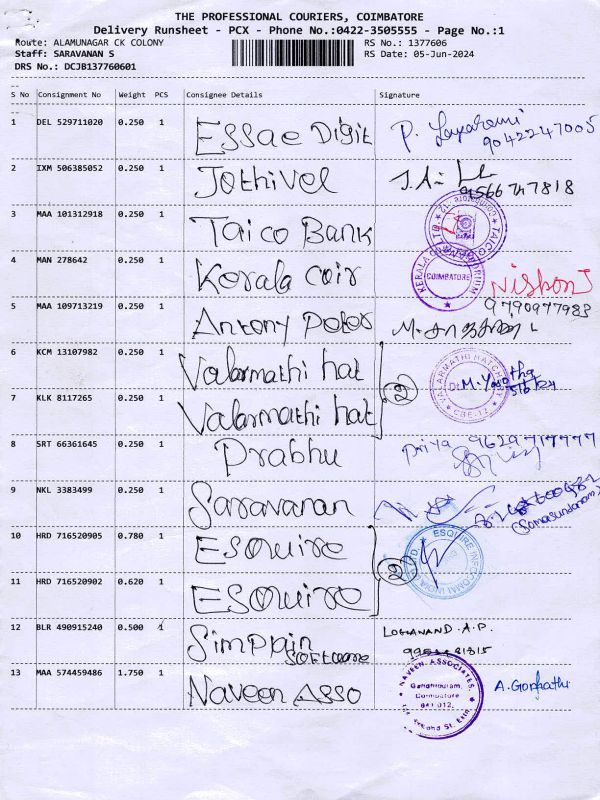 THE PROFESSIONAL COURIERS, COIMBATORE
Delivery Runsheet - PCX - Phone No.:0422-3505555 - Page No.:1
Route: ALAMUNAGAR CK COLONY
RS No.: 1377606
Staff: SARAVANAN S
RS Date: 05-Jun-2024
DRS No.: DCJB137760601
S No Consignment No Weight PCS Consignee Details Signature
1 DEL 529711020 0.250 1 Essae Digit P. 9042247005
2 IXM 506385052 0.250 1 Jothivel 9566747818
3 MAA 101312918 0.250 1 Taico Bank
4 MAN 278642 0.250 1 Kerala coir KERALA COIMBATORE
9790977983
5 MAA 109713219 0.250 1 Antony Peter
6 KCM 13107982 0.250 1 Valarmathi hat VALARMATHI
7 KLK 8117265 0.250 1 Valarmathi hat 2 CBE-12 5/6/24
8 SRT 66361645 0.250 1 Prabhu Priya 9629717777
9 NKL 3383499 0.250 1 Saravanan
10 HRD 716520905 0.780 1 ESQUIRE ESQUIRE
11 HRD 716520902 0.620 1 ESQUIRE 2
12 BLR 490915240 0.500 1 Simppin Software LOGANAND.A.P.
13 MAA 574459486 1.750 1 Naveen Asso NAVEEN ASSOCIATES, Coimbatore 641 012.